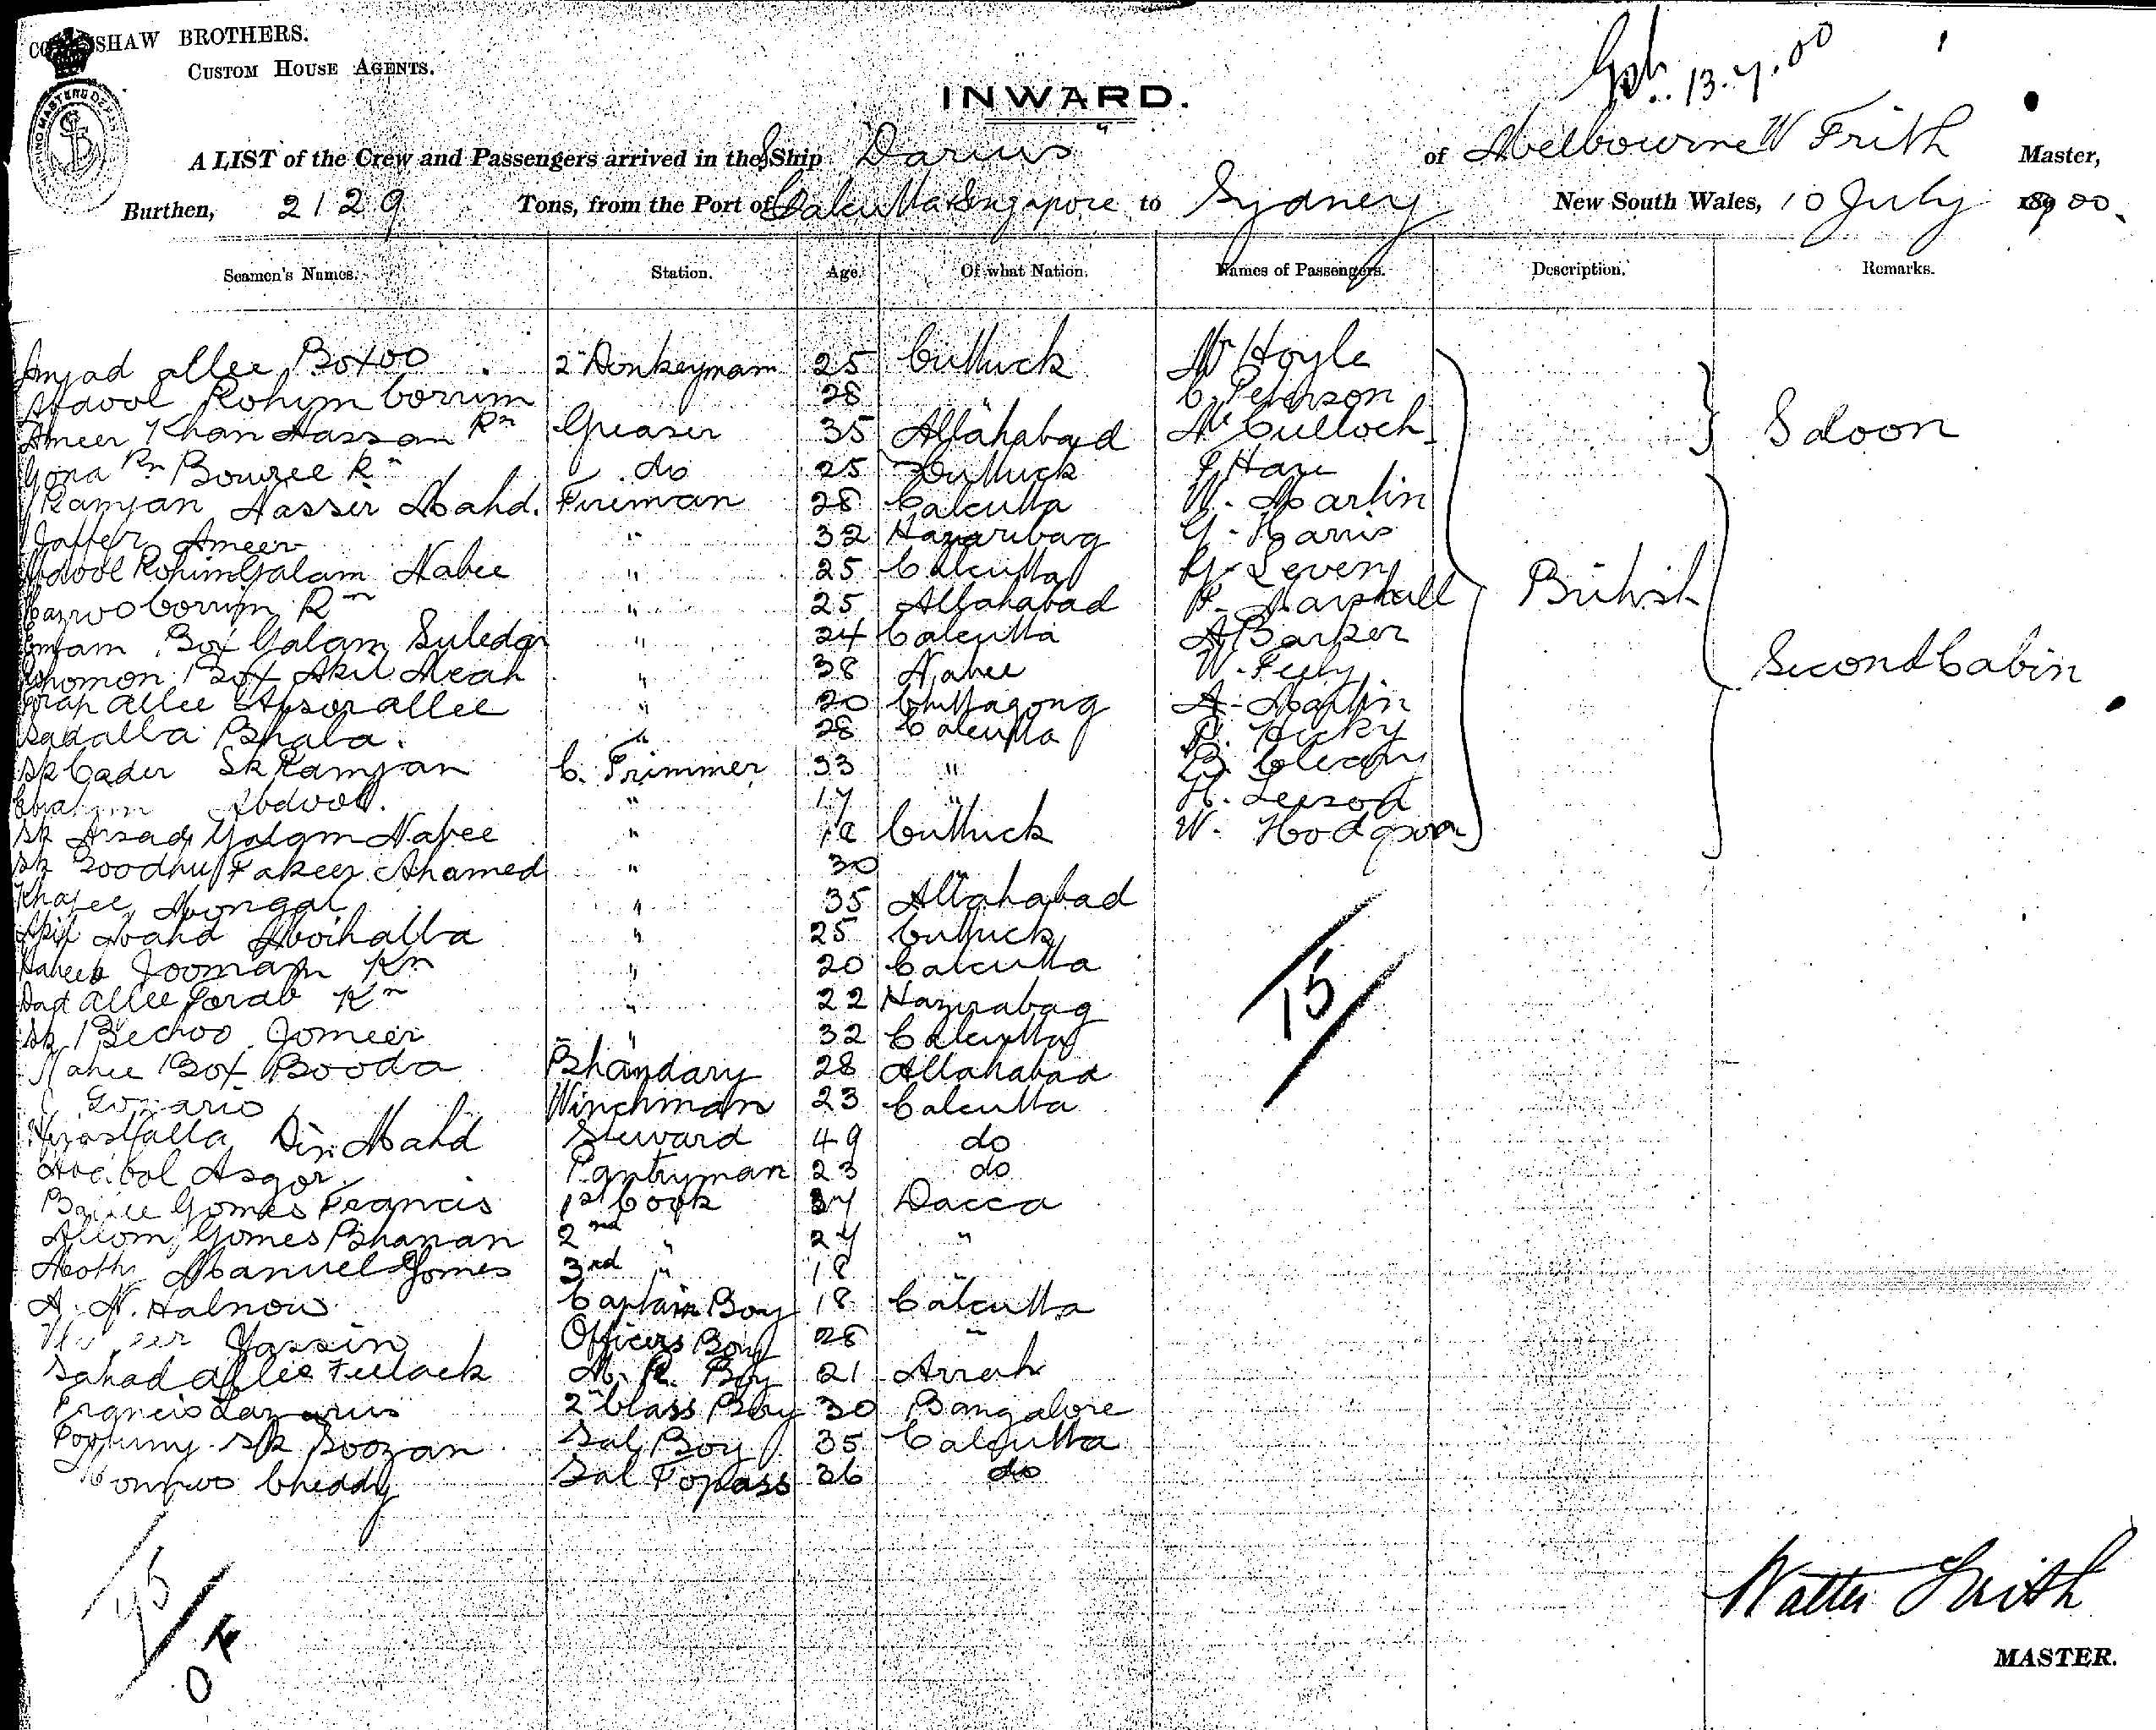 SHAW BROTHERS.
CUSTOM HOUSE AGENTS.
13.7.00
INWARD.
A LIST of the Crew and Passengers arrived in the Ship "Darius" of Melbourne W Frith Master,
Burthen, 2129 Tons, from the Port of Calcutta & Singapore to Sydney New South Wales, 10 July 1900.
Seamen's Names. Station. Age. Of what Nation. Names of Passengers. Description. Remarks.
Amjad allee Boxoo 2nd Donkeyman 25 Cuttuck Mr Hoyle
Abdool Rohim Corrim 28 " C. Peterson
Ameer Khan Hassan Kn Greaser 35 Allahabad McCulloch Saloon
Kn Bowree Kn do 25 Cuttuck Hare
Ramjan Nasser Mahd. Fireman 28 Calcutta W. Martin
Jaffer Ameer " 32 Hazaribag G. Harris
Abdool Rohim Golam Nabee " 25 Calcutta G. Leven
Corrim Kn " 25 Allahabad P. Marshall British
Emam Box Golam Suledar " 24 Calcutta A Barker
Box Akil Meah " 38 Nabee W. Feely Second Cabin
allee Ausor allee " 20 Chittagong A. Martin
Sadalla Bhala. " 28 Calcutta Hicky
Sk Cader Sk Ramjan C. Trimmer 33 " B. Cleary
Abdool. " 17 " H. Leeson
Sk Arsad Golam Nabee " Cuttuck W. Hodgson
Sk Boodhu Fakeer Ahamed " 30 "
Mongal " 35 Allahabad
Mahd Moihalla " 25 Cuttuck
Habeeb Jooman Kn " 20 Calcutta
allee Torab Kn " 22 Hazirabag
Sk Bechoo Jomeer " 32 Calcutta
Nabee Box Booda Bhandary 28 Allahabad
Winchman 23 Calcutta
Din Mahd Steward 49 do
Asgor Pantryman 23 do
Gomes Francis 1st Cook 37 Dacca
Allom Gomes Bhanan 2nd " 27 "
Manuel Gomes 3rd " 18 "
A. N. Halnow Captain Boy 18 Calcutta
Yassin Officers Boy 28 "
Sahad allee Fullack M. R. Boy 21 Arrah
Francis Lazarus 2nd Class Boy 30 Bangalore
Sk Boozan Sal Boy 35 Calcutta
Cheddy Sal Topass 36 do
15
Walter Frith
MASTER.